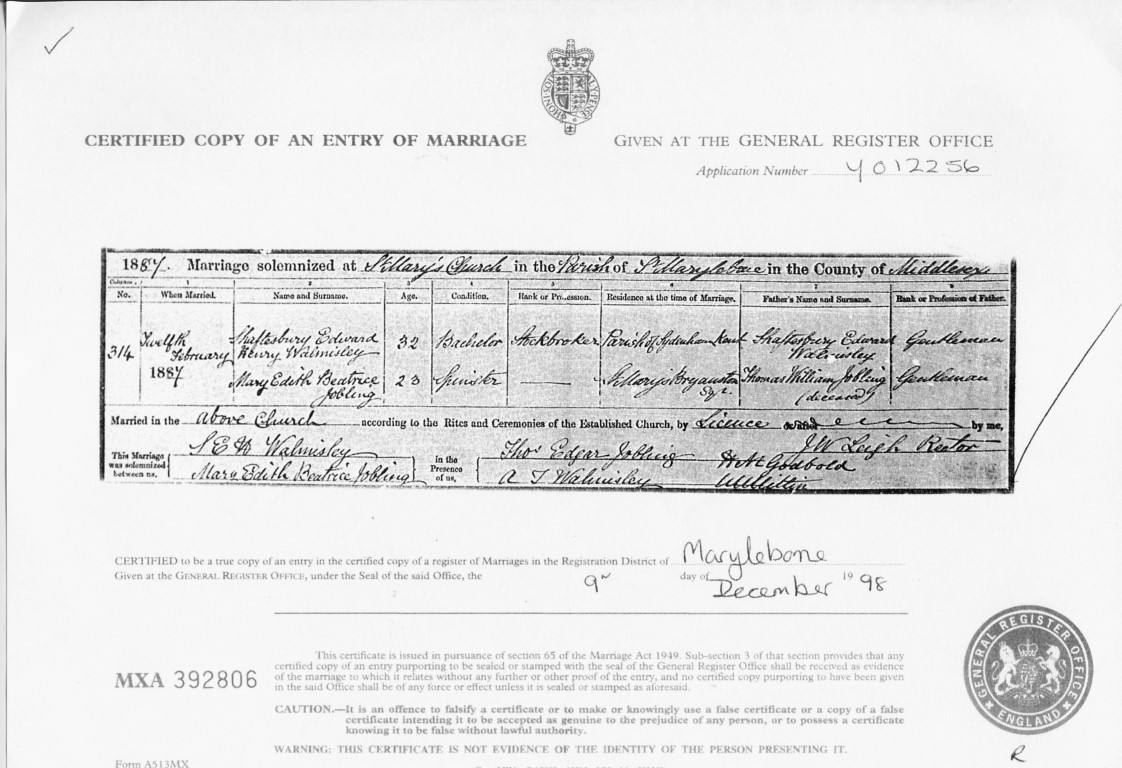 CERTIFIED COPY OF AN ENTRY OF MARRIAGE
GIVEN AT THE GENERAL REGISTER OFFICE
Application Number Y012256
1887. Marriage solemnized at St Mary's Church in the Parish of St Marylebone in the County of Middlesex
Columns
1 2 3 4 5 6 7 8
No. When Married. Name and Surname. Age. Condition. Rank or Profession. Residence at the time of Marriage. Father's Name and Surname. Rank or Profession of Father.
314 Twelfth February 1887 Shaftesbury Edward Henry Walmisley 32 Bachelor Stockbroker Parish of Sydenham Kent Shaftesbury Edward Walmisley Gentleman
Mary Edith Beatrice Jobling 23 Spinster — St Mary's Bryanston Sqr. Thomas William Jobling (deceased) Gentleman
Married in the above Church according to the Rites and Ceremonies of the Established Church, by Licence by me,
J W Leigh Rector
This Marriage was solemnized between us,
S E H Walmisley
Mary Edith Beatrice Jobling
in the Presence of us,
Thos Edgar Jobling
A T Walmisley
H A Godbold
CERTIFIED to be a true copy of an entry in the certified copy of a register of Marriages in the Registration District of Marylebone
Given at the GENERAL REGISTER OFFICE, under the Seal of the said Office, the 9th day of December 1998
This certificate is issued in pursuance of section 65 of the Marriage Act 1949. Sub-section 3 of that section provides that any
certified copy of an entry purporting to be sealed or stamped with the seal of the General Register Office shall be received as evidence
of the marriage to which it relates without any further or other proof of the entry, and no certified copy purporting to have been given
in the said Office shall be of any force or effect unless it is sealed or stamped as aforesaid.
MXA 392806
CAUTION.—It is an offence to falsify a certificate or to make or knowingly use a false certificate or a copy of a false
certificate intending it to be accepted as genuine to the prejudice of any person, or to possess a certificate
knowing it to be false without lawful authority.
WARNING: THIS CERTIFICATE IS NOT EVIDENCE OF THE IDENTITY OF THE PERSON PRESENTING IT.
GENERAL REGISTER OFFICE
ENGLAND
R
Form A513MX